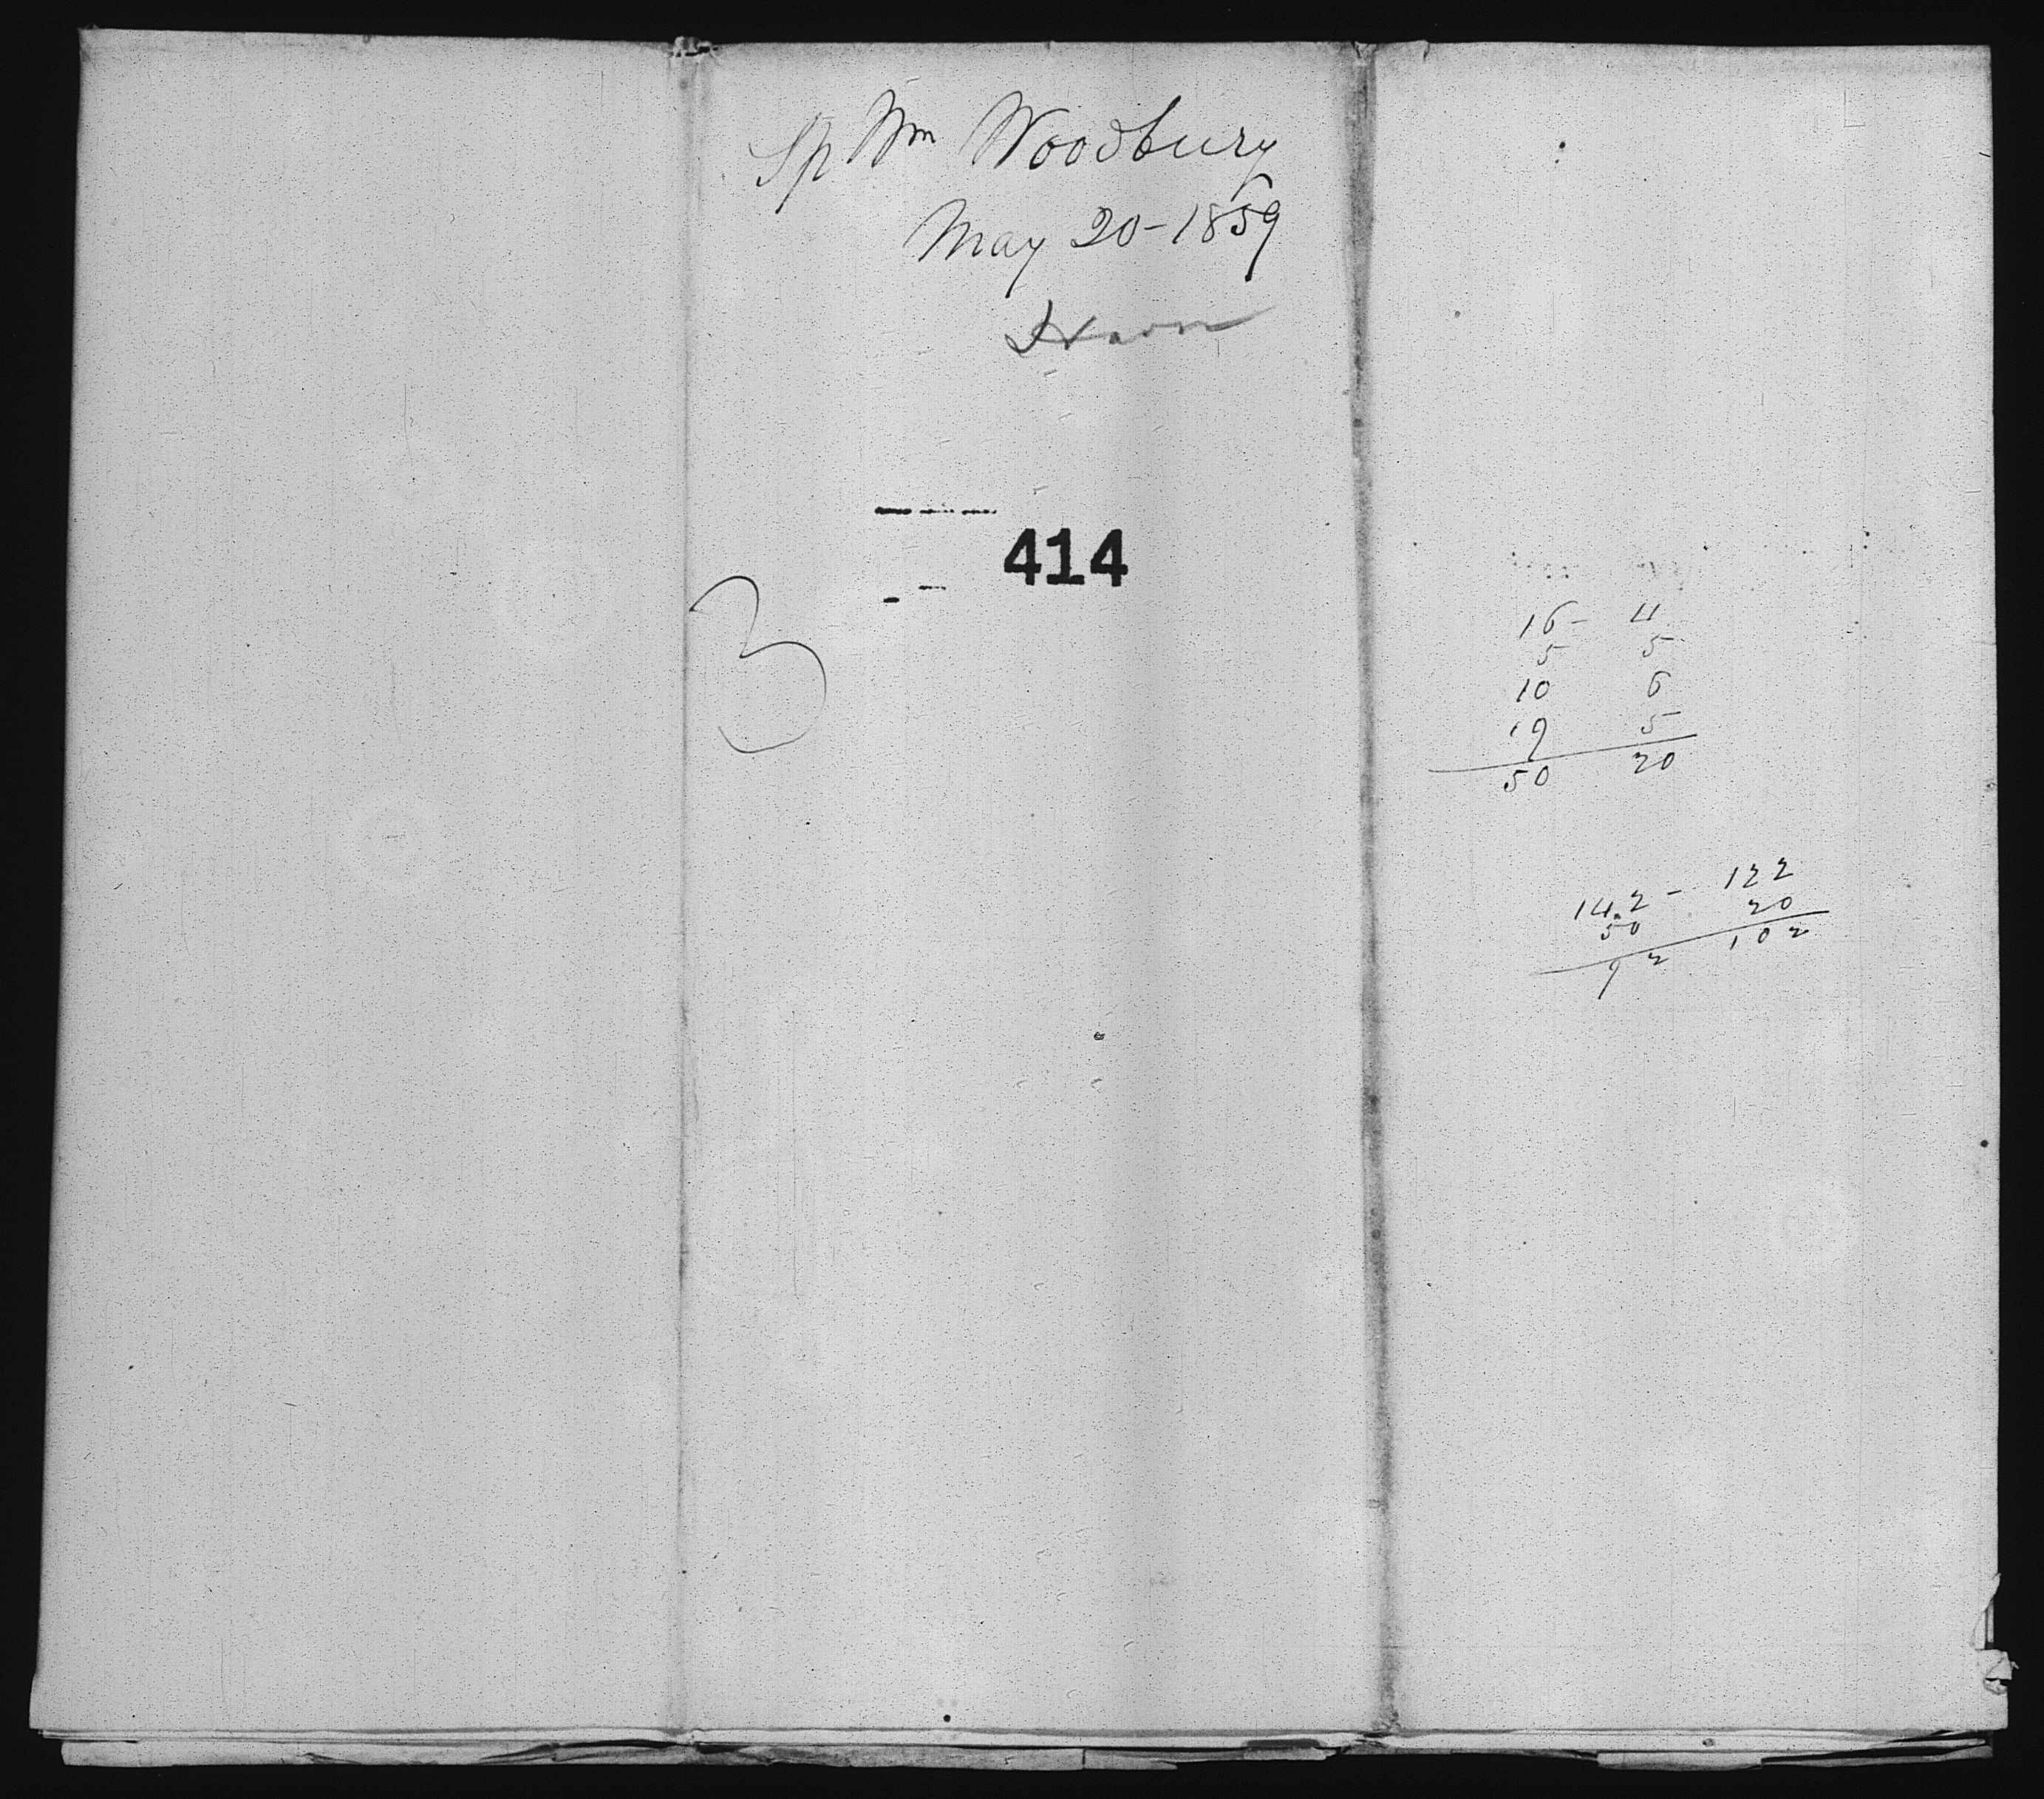 Sp Wm Woodbury
May 20-1859
414
3
16- 4
5 5
10 6
19 5
50 20
142 - 122
50 20
92 102